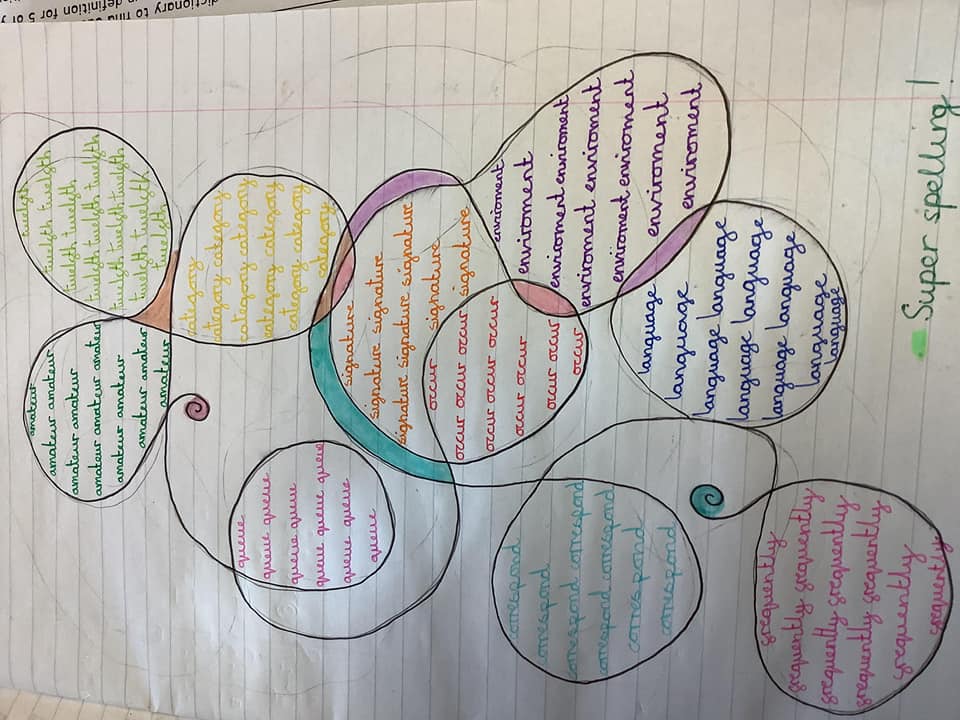 dictionary to find
definition for 5 of
amateur
amateur amateur
amateur amateur
amateur amateur amateur
amateur amateur
amateur amateur
amateur
twelfth
twelfth twelfth
twelfth twelfth
twelfth twelfth twelfth
twelfth twelfth twelfth
twelfth twelfth
twelfth
queue
queue queue
queue queue
queue queue queue
queue queue
queue
category
category category
category category
category category
category category
category
signature
signature signature
signature signature signature
signature
signature
occur
occur occur occur
occur occur occur
occur occur
occur occur
occur
enviroment
enviroment
enviroment enviroment
enviroment enviroment
enviroment enviroment
enviroment
enviroment
correspond
correspond
correspond correspond
correspond correspond
correspond
correspond
language
language
language language
language language
language language
language
language
frequently
frequently frequently
frequently frequently
frequently frequently
frequently
frequently
Super spelling!